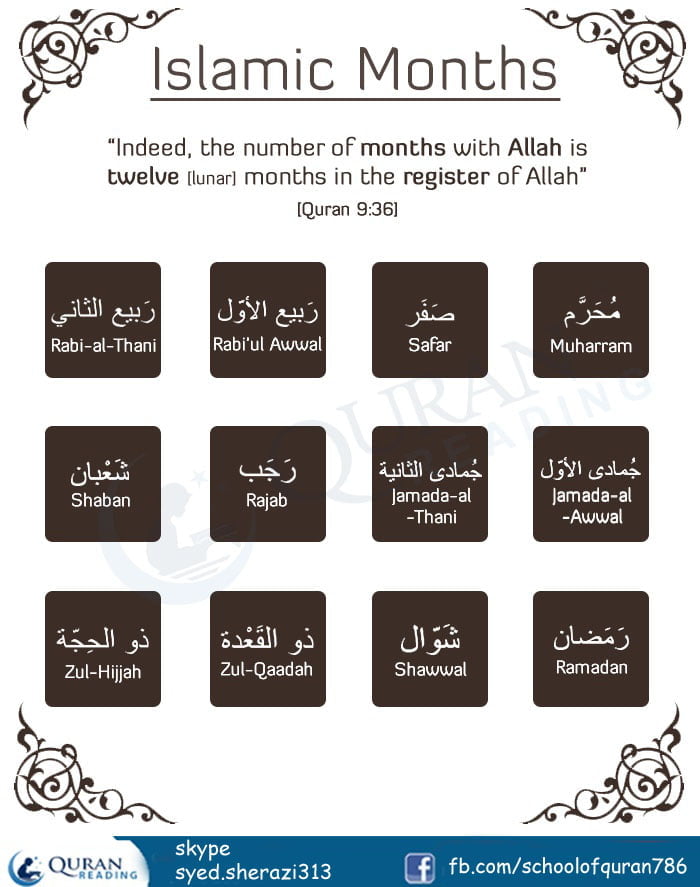 Islamic Months
“Indeed, the number of months with Allah is
twelve [lunar] months in the register of Allah”
[Quran 9:36]
مُحَرَّم
Muharram
صَفَر
Safar
رَبيع الأوّل
Rabi'ul Awwal
رَبيع الثاني
Rabi-al-Thani
جُمادى الأوّل
Jamada-al
-Awwal
جُمادى الثانية
Jamada-al
-Thani
رَجَب
Rajab
شَعْبان
Shaban
رَمَضان
Ramadan
شَوّال
Shawwal
ذو القَعْدة
Zul-Qaadah
ذو الحِجّة
Zul-Hijjah
QURAN
READING
QURAN
READING
skype
syed.sherazi313
fb.com/schoolofquran786